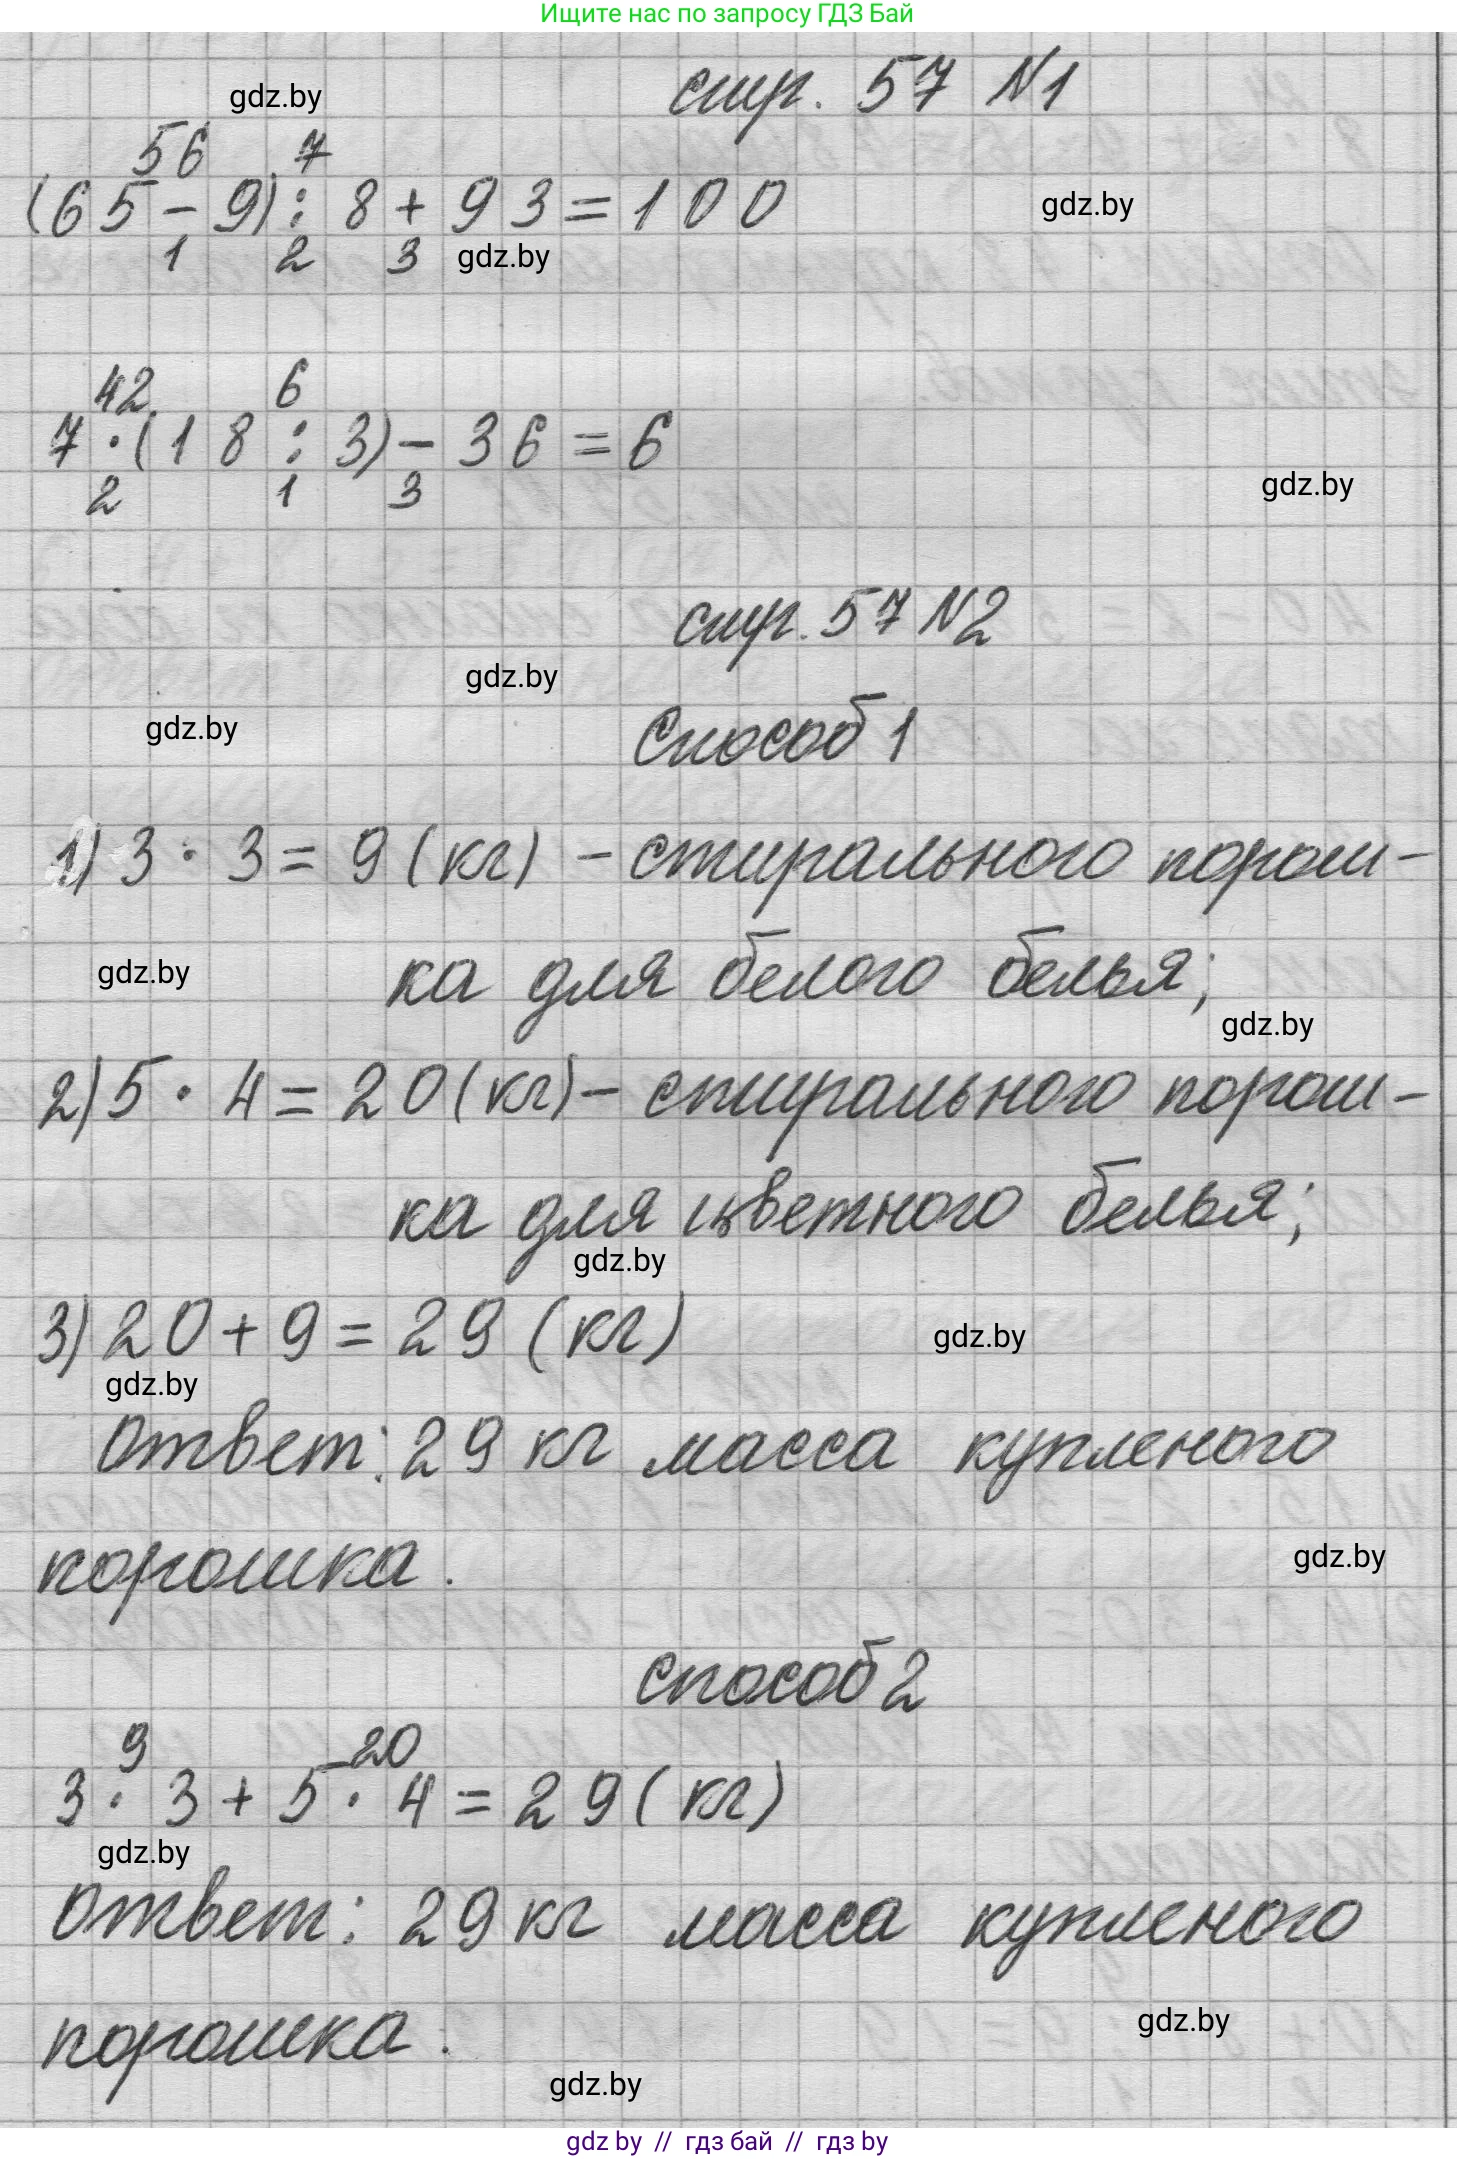 Ищите нас по запросу ГДЗ Бай
стр. 57 №1
gdz.by
56 7
(65 - 9) : 8 + 93 = 100
gdz.by
1 2 3
gdz.by
42 6
7 · (18 : 3) - 36 = 6
2 1 3
gdz.by
стр. 57 №2
gdz.by
gdz.by
Способ 1
1) 3 · 3 = 9 (кг) - стирального порош-
ка для белого белья;
gdz.by
gdz.by
2) 5 · 4 = 20 (кг) - стирального порош-
ка для цветного белья;
gdz.by
3) 20 + 9 = 29 (кг)
gdz.by
gdz.by
Ответ: 29 кг масса купленого
порошка.
gdz.by
способ 2
9 20
3 · 3 + 5 · 4 = 29 (кг)
gdz.by
Ответ: 29 кг масса купленого
порошка.
gdz.by
gdz.by
gdz by // гдз бай // гдз by